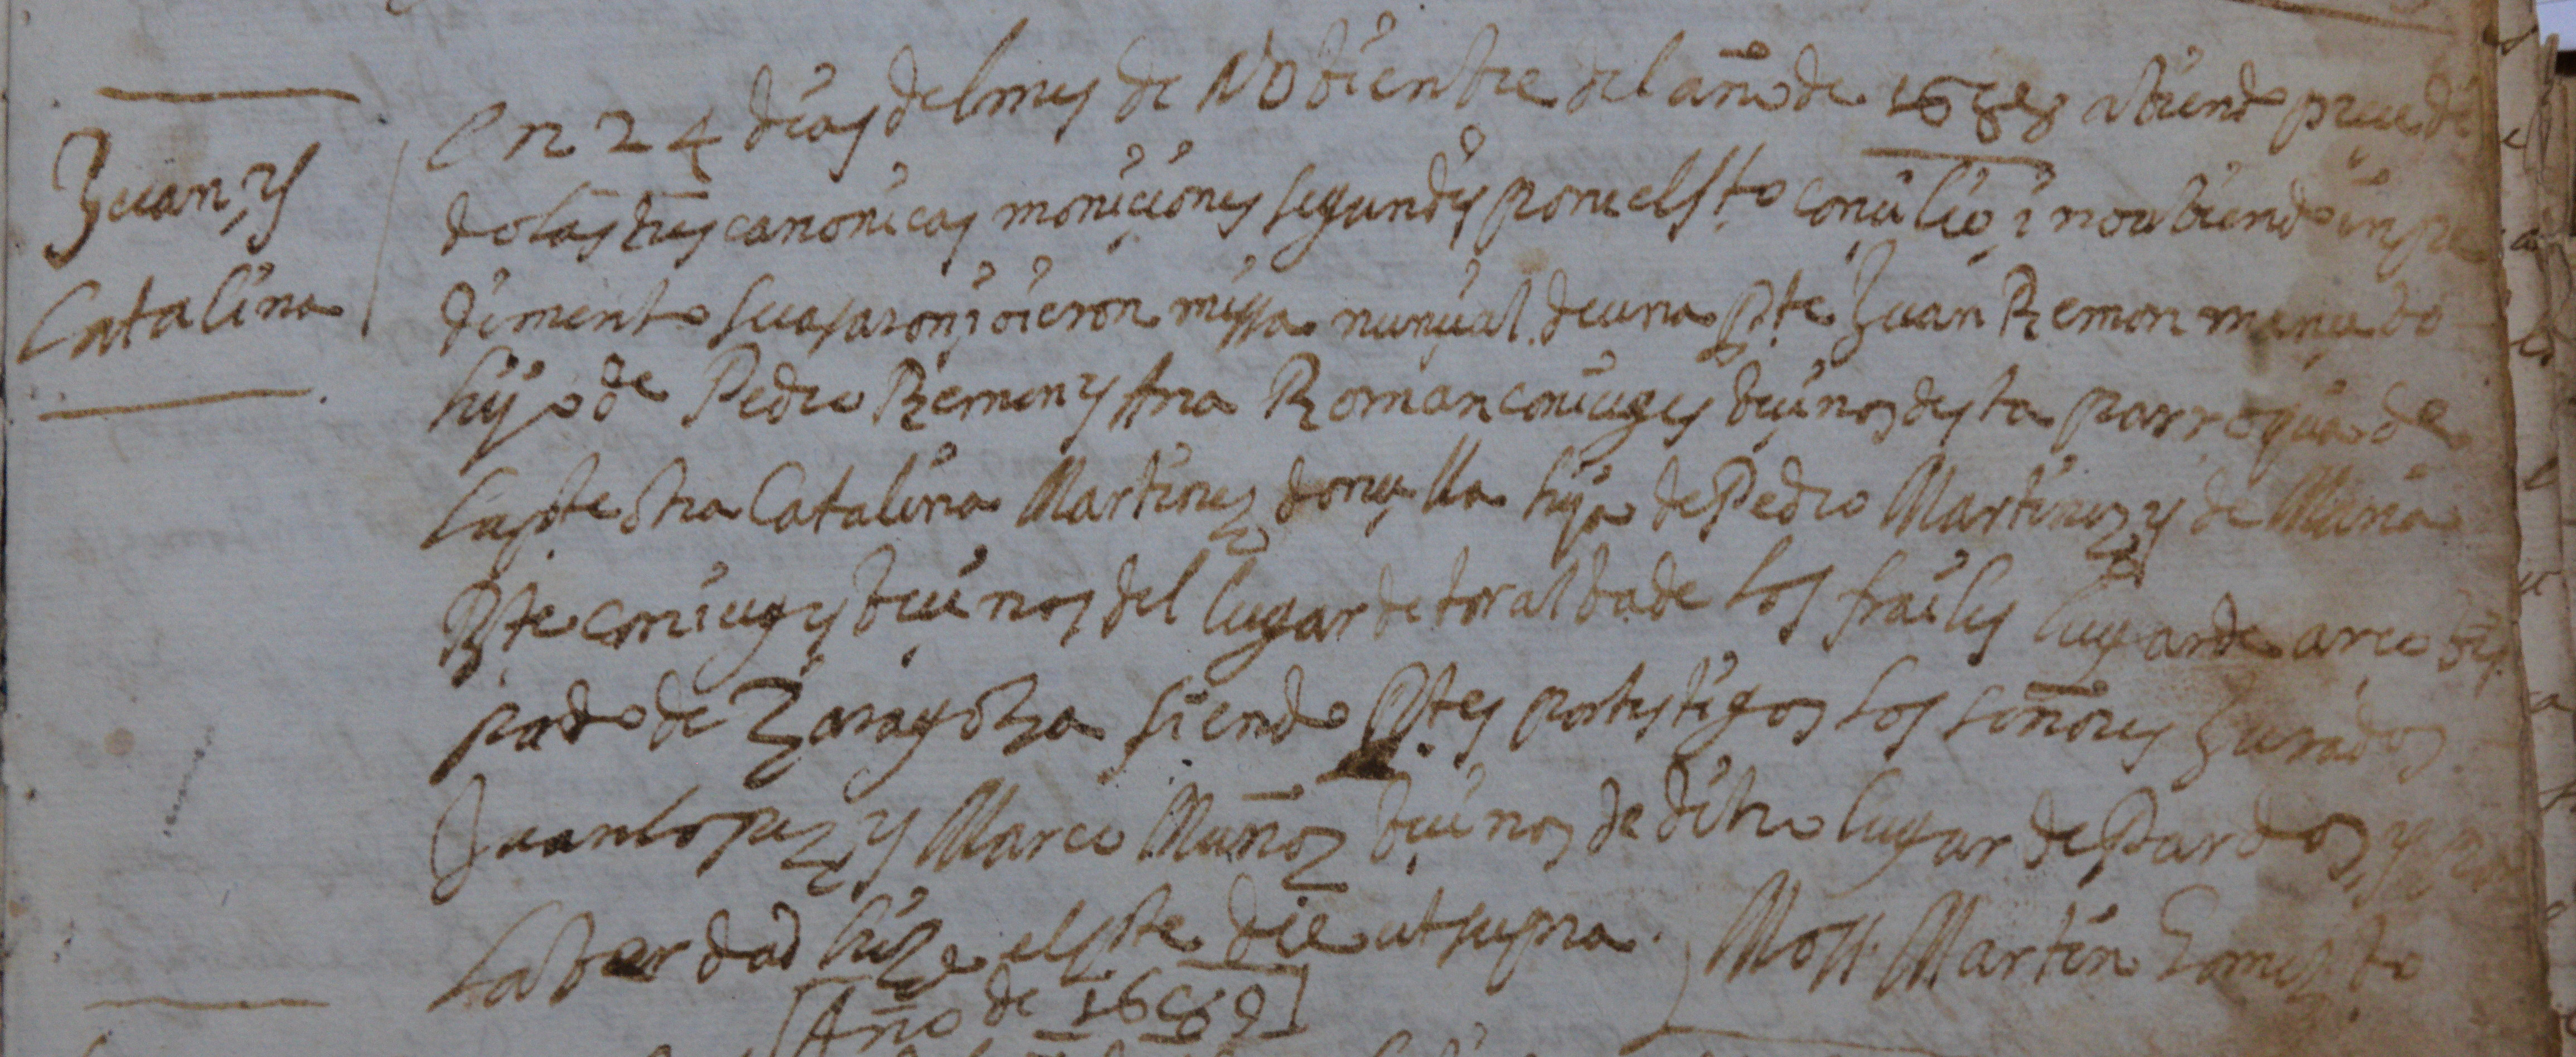 Juan y
Catalina
En 24 dias del mes de Nobienbre del año de 1688 abiendo precedi
do las tres canonicas moniciones segun dispone el Sto concilio i no abiendo inpe
dimento se casaron i oieron missa nuncial de una pte Juan Remon mancebo
hijo de Pedro Remon y Ana Roman coniuges becinos desta parroquia de
la pte otra Catalina Martinez doncella hija de Pedro Martinez y de Maria
coniuges becinos del lugar de toralba de los frailes lugar de arcobis
pado de Zaragoza siendo ptes por testigos los señores Jurados
Juan lopez y Marco Muñoz becinos de dicho lugar de Pardos, y por
la berdad hize el pste die ut supra. Moss. Martin Gomez
[Año de 1689]